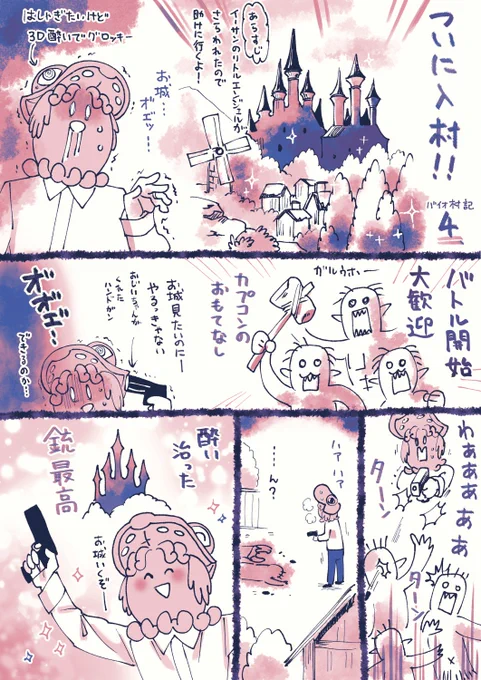 ついに入村!!
バイオ村記
4
あらすじ
イーサンのリトルエンジェルが
さらわれたので
助けに行くよ!
はしゃぎたいけど
3D酔いでグロッキー
お城…
オェッ…
バトル開始
大歓迎
ガルウホー
カプコンの
おもてなし
お城見たいのにー
やるっきゃない
おじいちゃんが
くれた
ハンドガン
オボェ…
できるのか…
わぁああああ
ターン
ターン
ハァハァ
……ん?
酔い
治った
銃最高
お城いくぞー